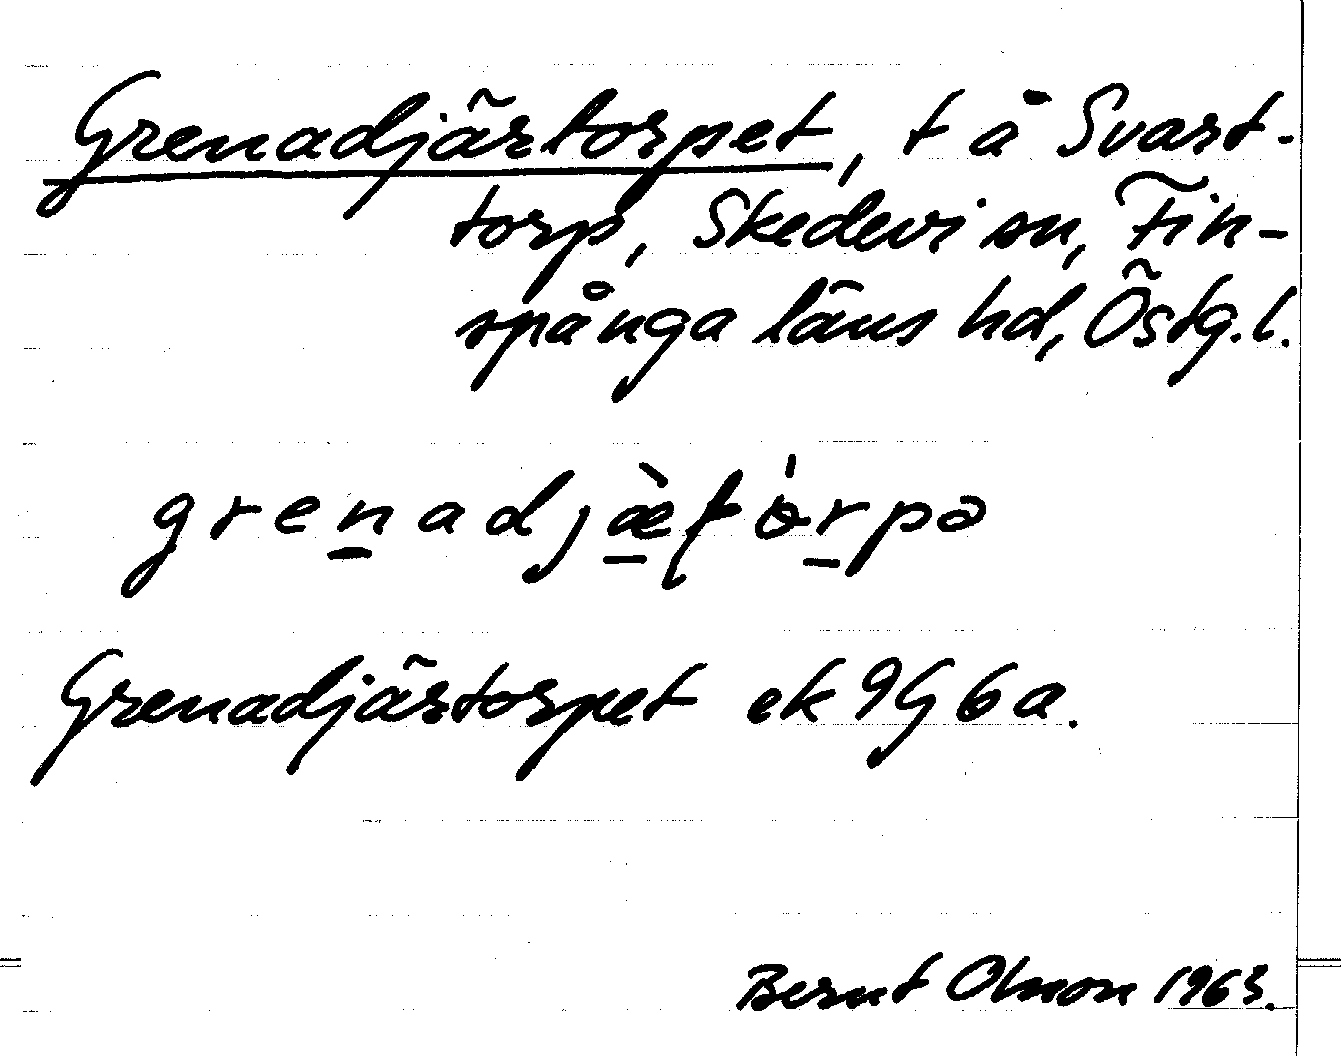 Grenadjärstorpet, t å Svart-
torp, Skedevi sn, Fin-
spånga läns hd, Östg. l.
grenadjæ̀ʈórpə
Grenadjärstorpet ek 9G6a.
Bernt Olsson 1963.